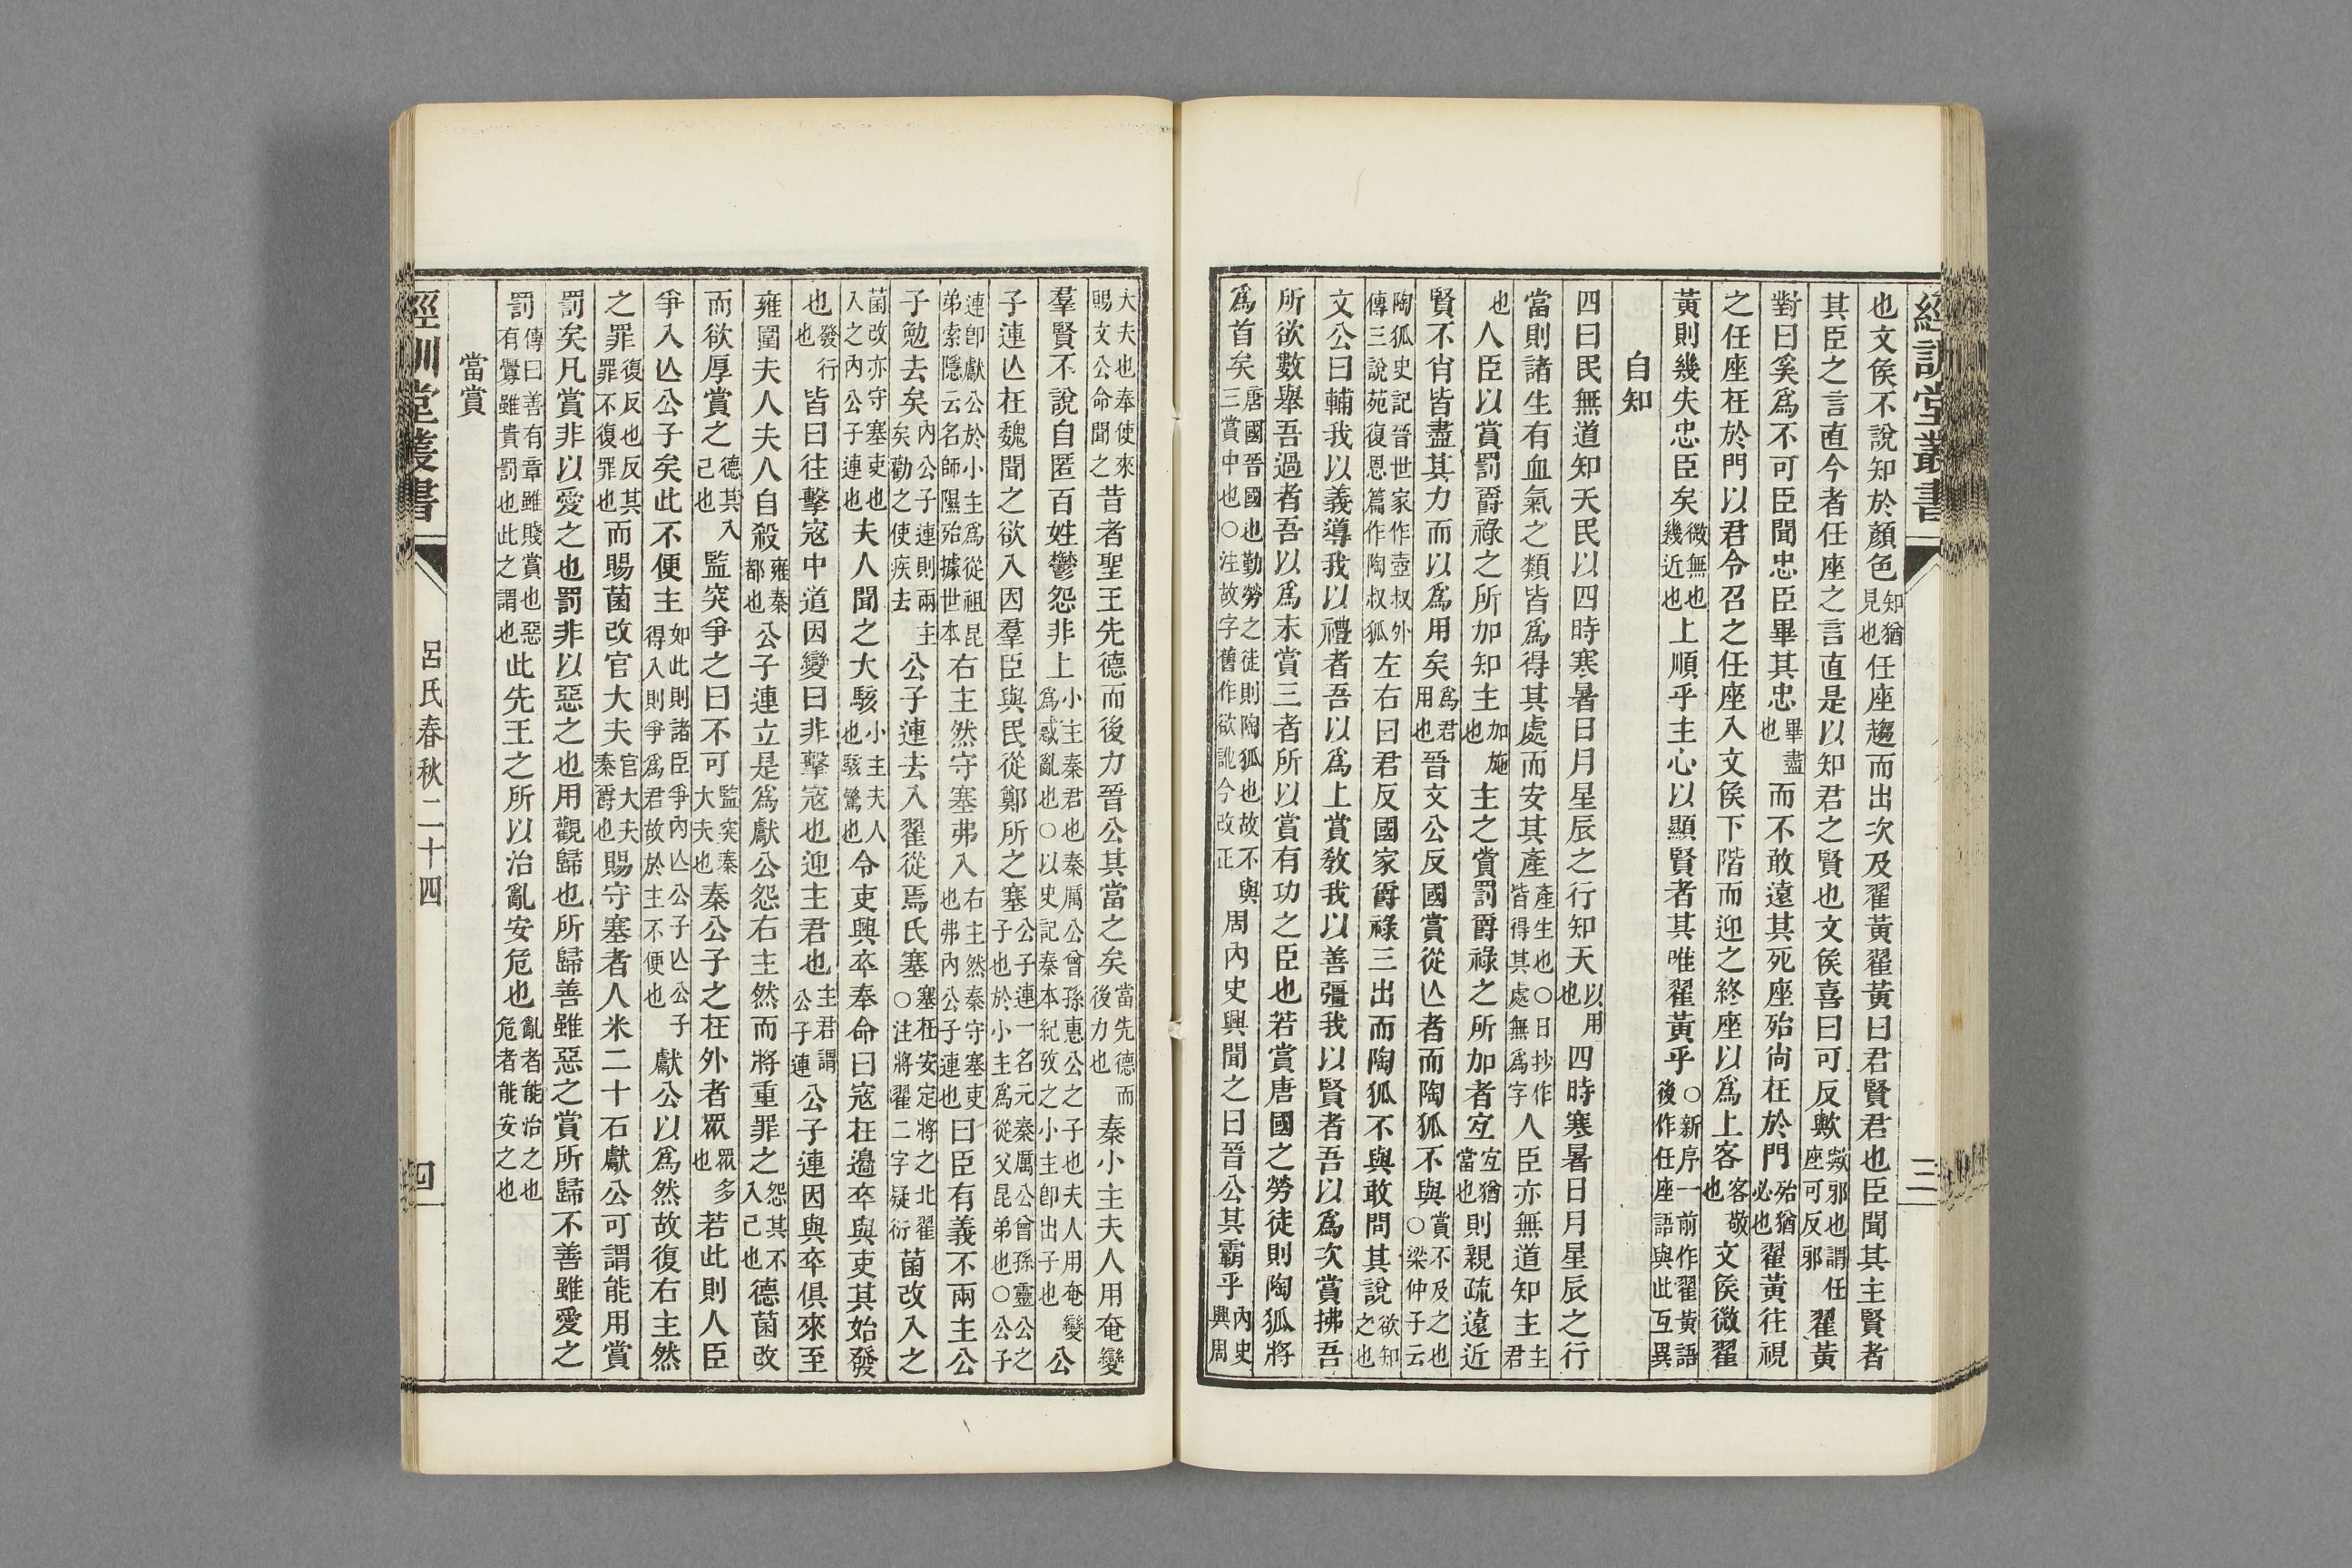 經訓堂叢書
三
也文侯不說知於顏色知猶見也任座趨而出次及翟黃翟黃曰君賢君也臣聞其主賢者
其臣之言直今者任座之言直是以知君之賢也文侯喜曰可反歟歟邪也謂任座可反邪翟黃
對曰奚爲不可臣聞忠臣畢其忠畢盡也而不敢遠其死座殆尚在於門殆猶必也翟黃往視
之任座在於門以君令召之任座入文侯下階而迎之終座以爲上客客敬也文侯微翟
黃則幾失忠臣矣微無也幾近也上順乎主心以顯賢者其唯翟黃乎○新序一前作翟黃語後作任座語與此互異
自知
四曰民無道知天民以四時寒暑日月星辰之行知天以用也四時寒暑日月星辰之行
當則諸生有血氣之類皆爲得其處而安其產產生也○日抄作皆得其處無爲字人臣亦無道知主主君
也人臣以賞罰爵祿之所加知主加施也主之賞罰爵祿之所加者宜宜猶當也則親疏遠近
賢不肖皆盡其力而以爲用矣爲君用也晉文公反國賞從亾者而陶狐不與賞不及之也○梁仲子云
陶狐史記晉世家作壺叔外傳三說苑復恩篇作陶叔狐左右曰君反國家爵祿三出而陶狐不與敢問其說欲知之也
文公曰輔我以義導我以禮者吾以爲上賞敎我以善彊我以賢者吾以爲次賞拂吾
所欲數舉吾過者吾以爲末賞三者所以賞有功之臣也若賞唐國之勞徒則陶狐將
爲首矣唐國晉國也勤勞之徒則陶狐也故不與三賞中也○注故字舊作欲訛今改正周內史興聞之曰晉公其霸乎內史興周
大夫也奉使來賜文公命聞之昔者聖王先德而後力晉公其當之矣當先德而後力也秦小主夫人用奄變
羣賢不說自匿百姓鬱怨非上小主秦君也秦厲公曾孫惠公之子也夫人用奄變爲惑亂也○以史記秦本紀攷之小主卽出子也公
子連亾在魏聞之欲入因羣臣與民從鄭所之塞公子連一名元秦厲公曾孫靈公之子也於小主爲從父昆弟也○公子
連卽獻公於小主爲從祖昆弟索隱云名師隰殆據世本右主然守塞弗入右主然秦守塞吏也弗內公子連也曰臣有義不兩主公
子勉去矣內公子連則兩主矣勸之使疾去公子連去入翟從焉氏塞塞在安定將之北翟○注將翟二字疑衍菌改入之
菌改亦守塞吏也入之內公子連也夫人聞之大駭小主夫人也駭驚也令吏興卒奉命曰寇在邊卒與吏其始發
也發行也皆曰往擊寇中道因變曰非擊寇也迎主君也主君謂公子連公子連因與卒俱來至
雍圍夫人夫人自殺雍秦都也公子連立是爲獻公怨右主然而將重罪之怨其不入己也德菌改
而欲厚賞之德其入己也監突爭之曰不可監突秦大夫也秦公子之在外者眾眾多也若此則人臣
爭入亾公子矣此不便主如此則諸臣爭內亾公子亾公子得入則爭爲君故於主不便也獻公以爲然故復右主然
之罪復反也反其罪不復罪也而賜菌改官大夫官大夫秦爵也賜守塞者人米二十石獻公可謂能用賞
罰矣凡賞非以愛之也罰非以惡之也用觀歸也所歸善雖惡之賞所歸不善雖愛之
罰傳曰善有章雖賤賞也惡有釁雖貴罰也此之謂也此先王之所以治亂安危也亂者能治之也危者能安之也
當賞
經訓堂叢書
呂氏春秋二十四
四